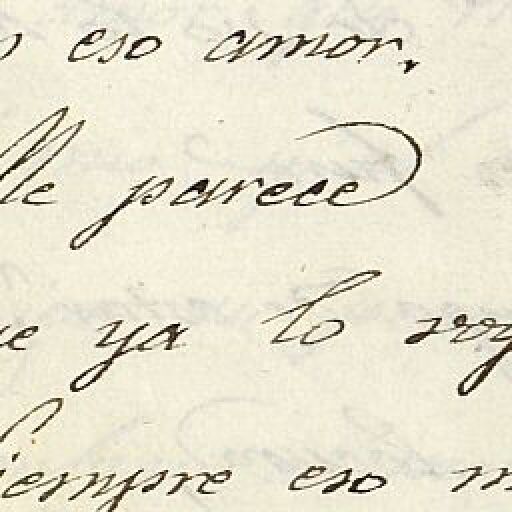 eso amor.
Me parece
ya lo voy
Siempre eso